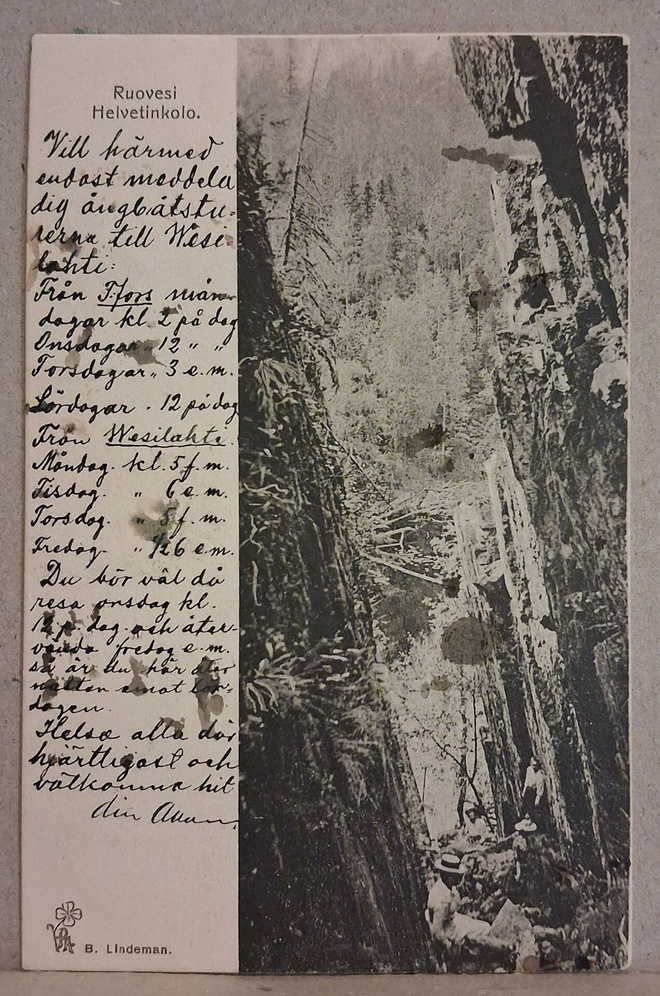 Ruovesi
Helvetinkolo.
Vill härmed
endast meddela
dig ångbåtstu-
rerna till Wesi-
lahti:
Från T:fors mån-
dagar kl 2 på dag
Onsdagar " 12 " "
Torsdagar " 3 e.m.
Lördagar - 12 på dag
Från Wesilahti.
Måndag. kl. 5 f.m.
Tisdag. " 6 e.m.
Torsdag. " 5 f.m.
Fredag. " 1/2 6 e.m.
Du bör väl då
resa onsdag kl.
12 p. dag. och åter-
vända fredag e.m.
så är du här åter
natten emot lör-
dagen.
Helsa alla där
hjärtligast och
välkomna hit
din
B. Lindeman.